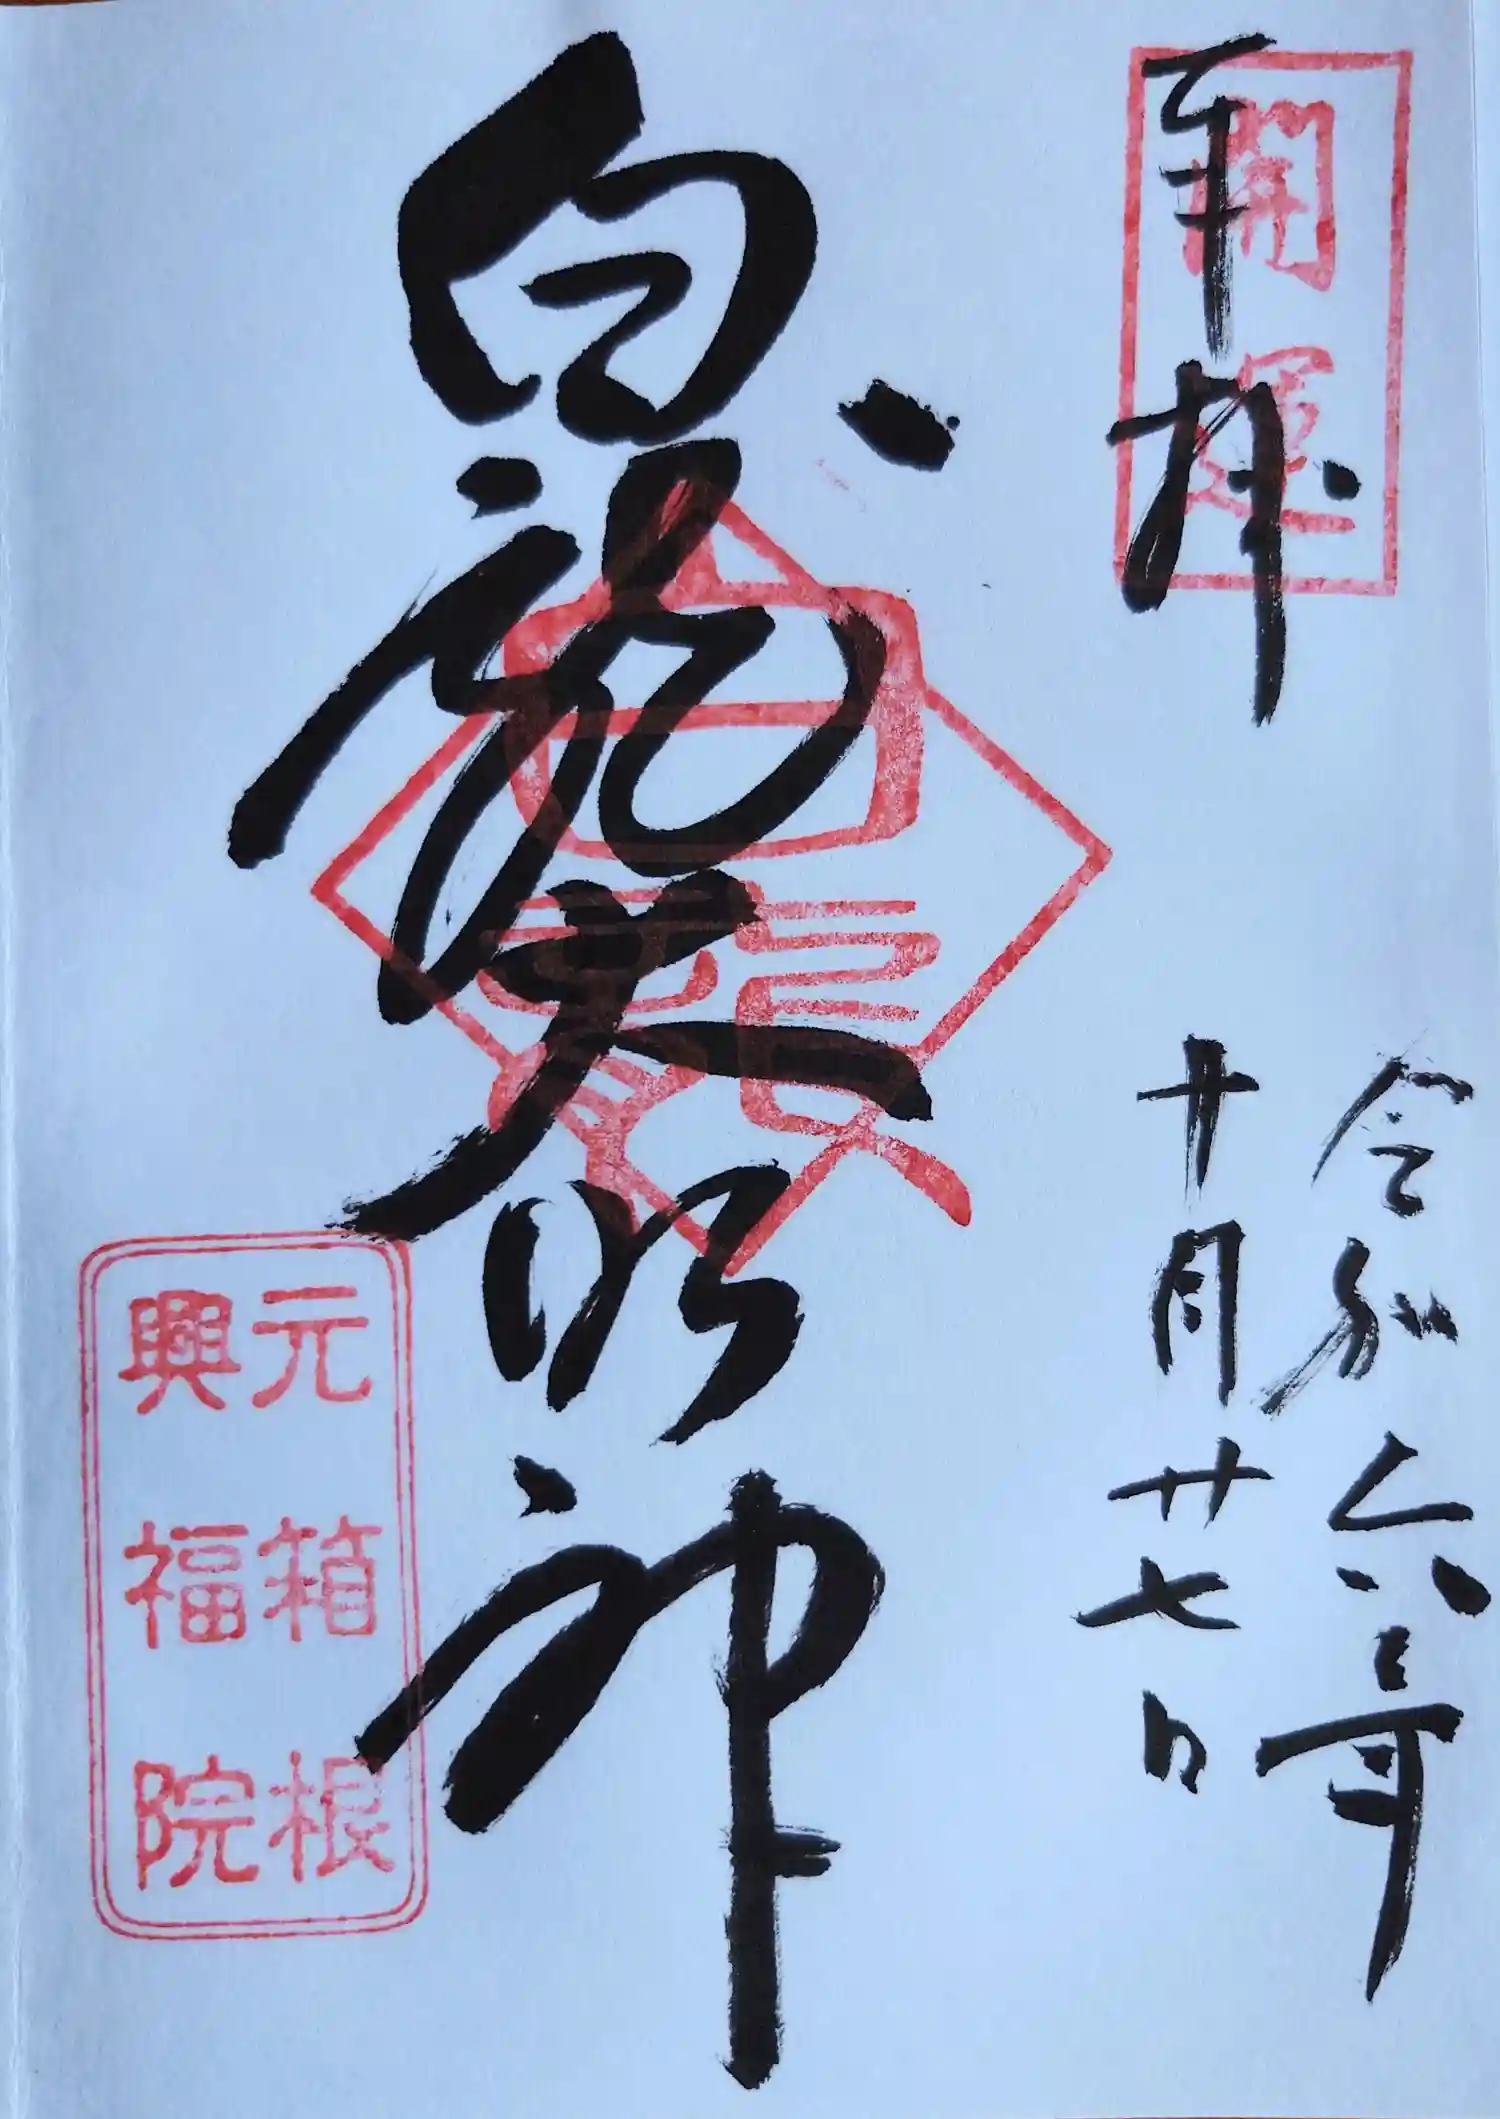 奉拝
開運
令和六年
十月廿七日
白龍大明神
白龍
元箱根
興福院